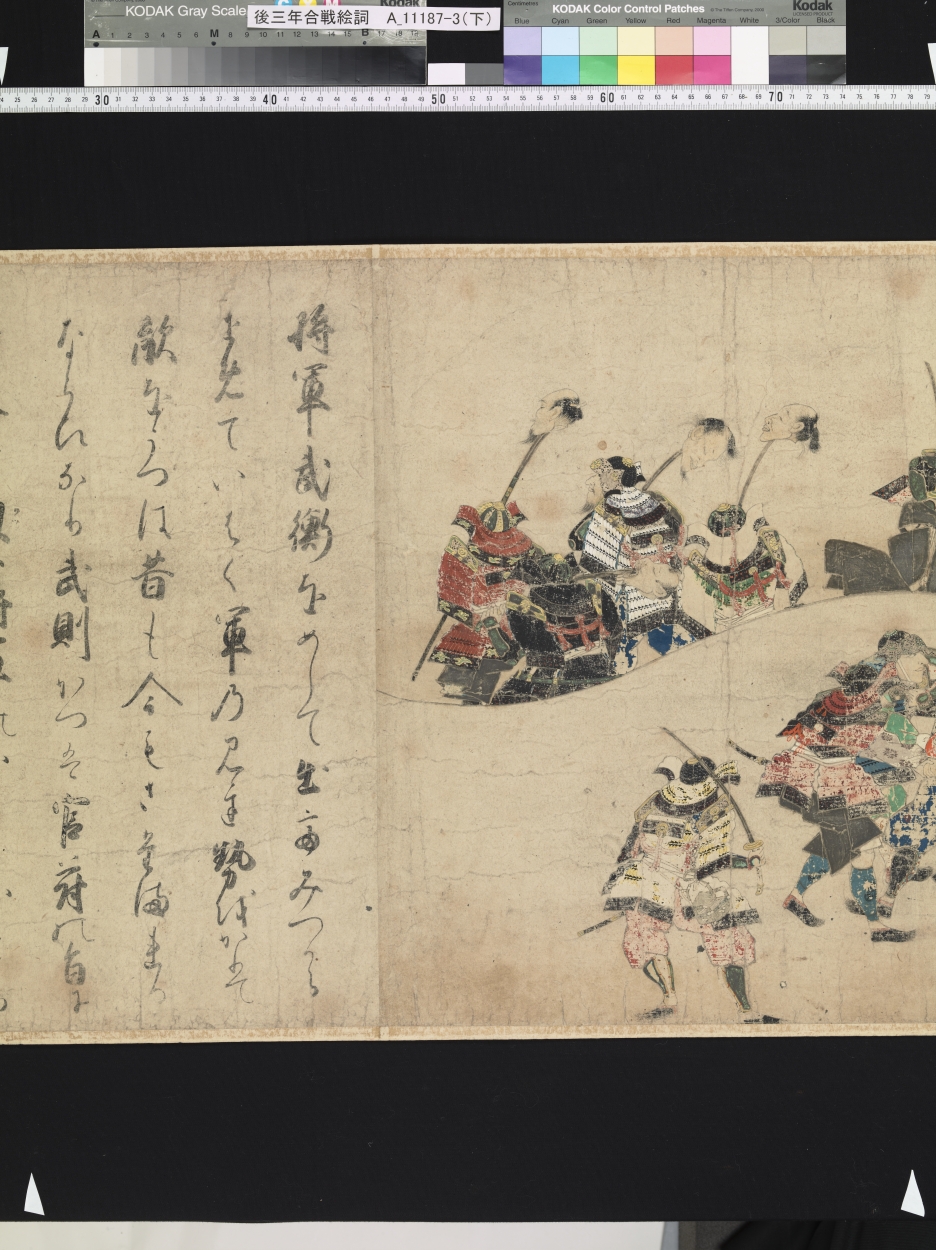 KODAK Gray Scale
Kodak
後三年合戦絵詞 A_11187-3(下)
A 1 2 3 4 5 6 M 8 9 10 11 12 13 14 15 B 17 18 19
KODAK Color Control Patches
Kodak
LICENSED PRODUCT
Centimetres
Blue Cyan Green Yellow Red Magenta White 3/Color Black
30 40 50 60 70
将軍武衡をめして出てみつから
せめていはく軍乃みち勢をかりて
敵をうつは昔も今もさたまれる
ならひなり武則かつは官符の旨に